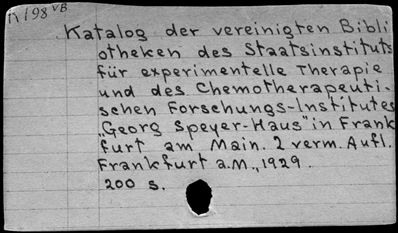 K 198 VB
Katalog der vereinigten Bibli
otheken des Staatsinstituts
für experimentelle Therapie
und des Chemotherapeuti-
schen Forschungs-Institutes
"Georg Speyer-Haus" in Frank
furt am Main. 2 verm. Aufl.
Frankfurt a.M., 1929.
200 S.